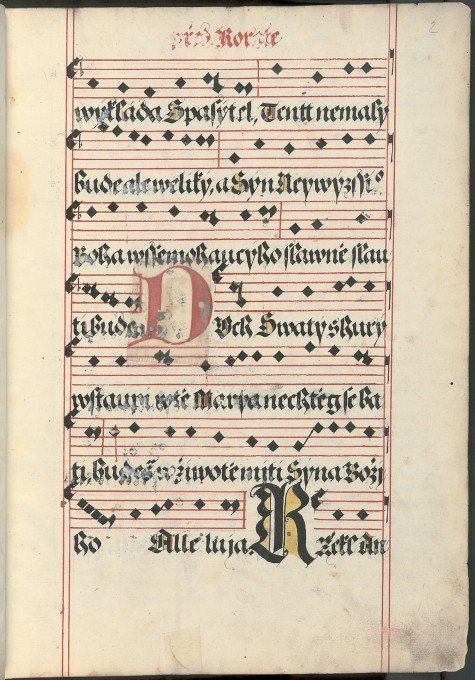 2
wykláda Spasytel, Tentt nemaly
bude ale weliky, a Syn Neywyzssi°
Boha wssemohaucyho slawně slau
ti bude DVch Swaty shury
wstaupi wtě Marya nechtěg se ba
ti, budeš w žiwotě miti Syna Boži
ho Alleluja. Rzekl An